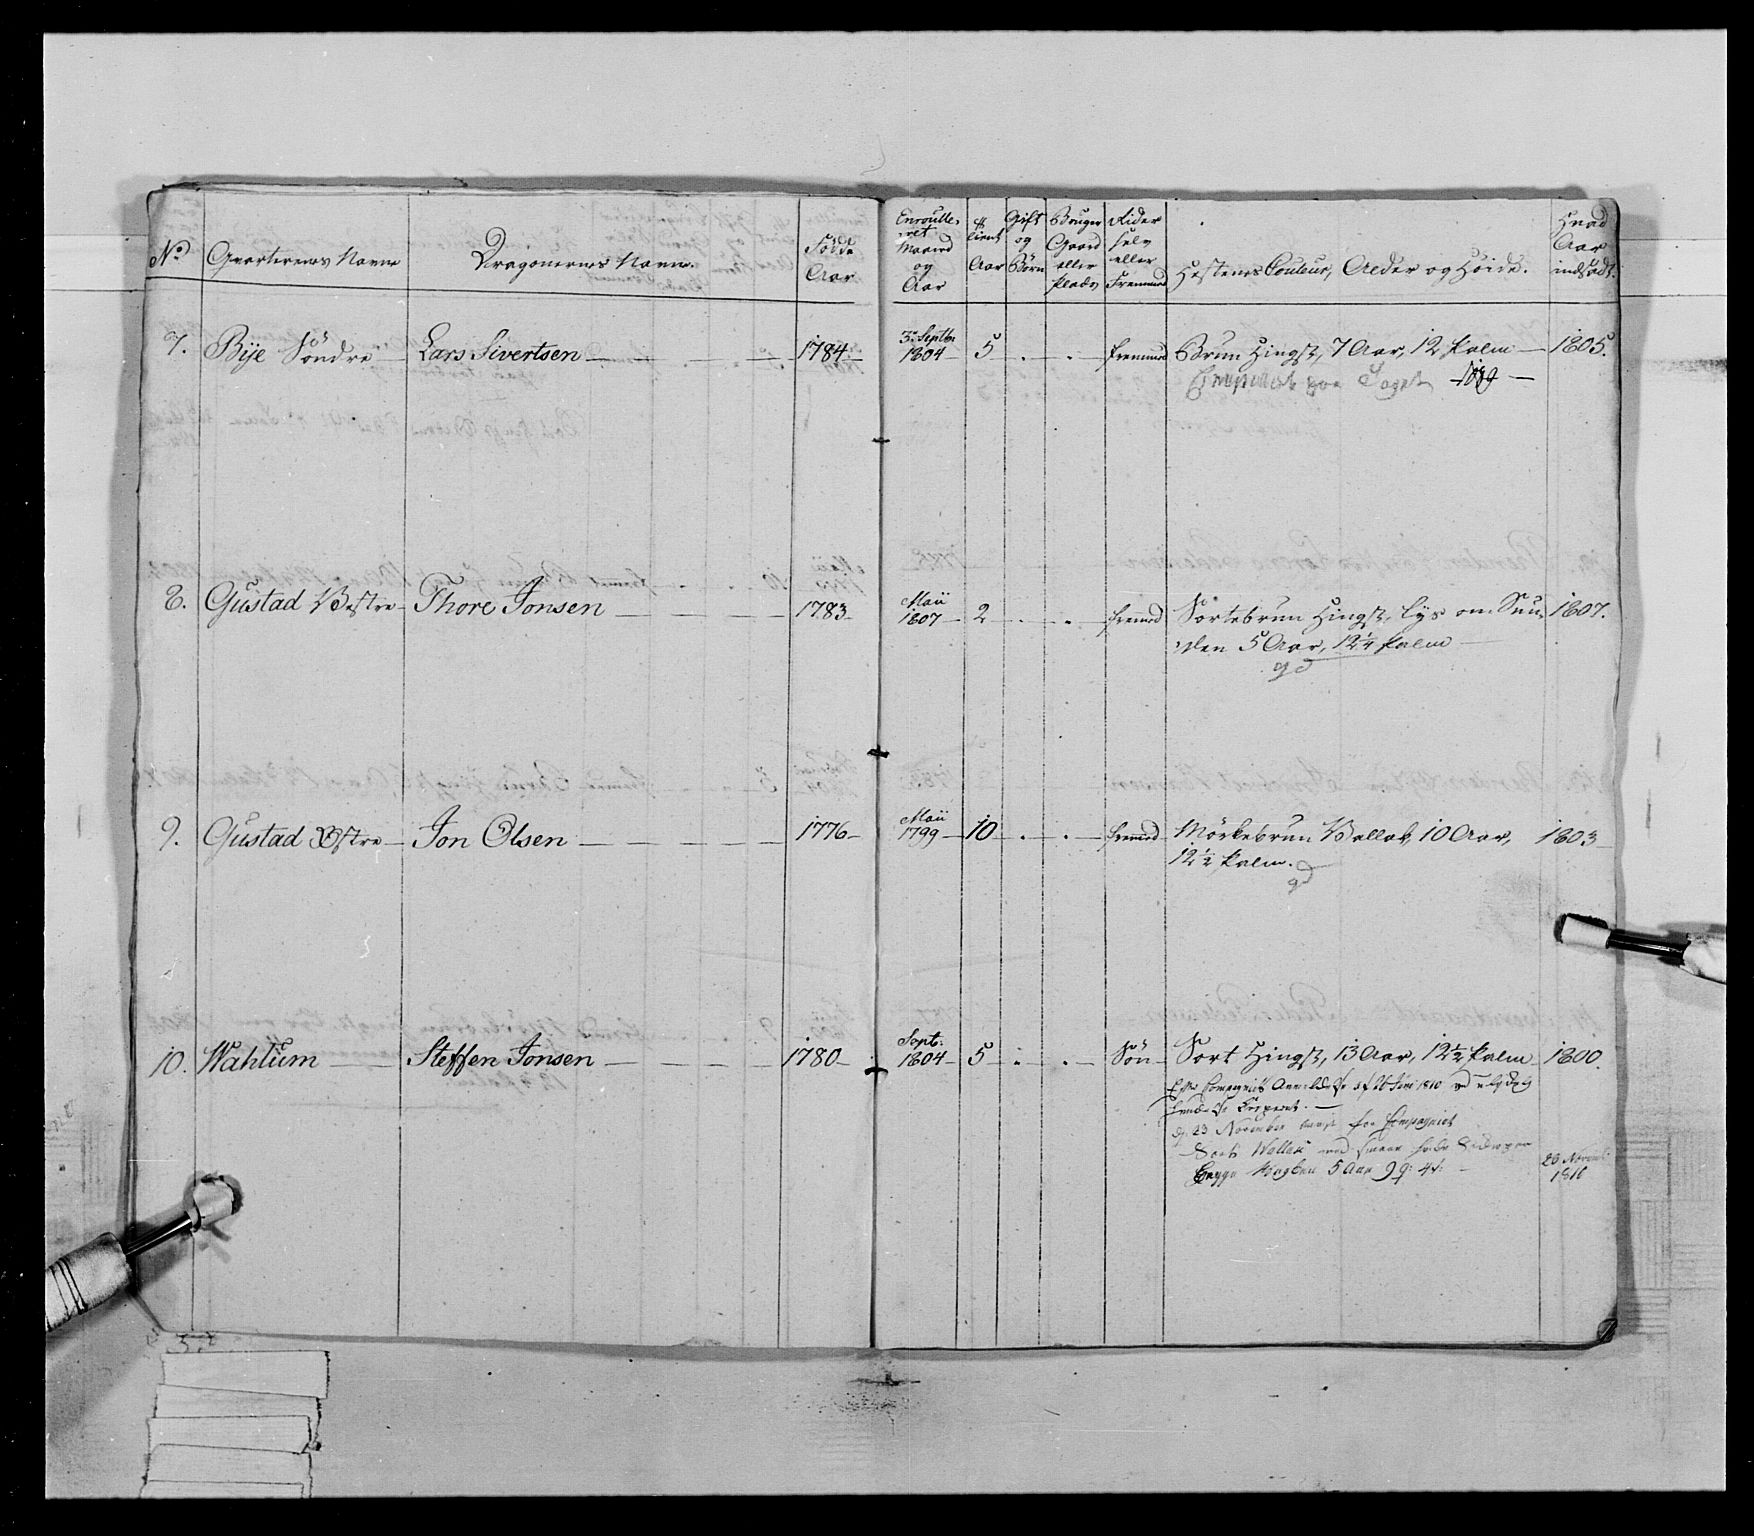 No Qvarterenes Navne Dragonernes Navne. Födde Aar Enroulleret Maaned og Aar tient Aar Gift og Börn Bruger Gaard eller Plads Rider selv eller Fremmed Hestens Couleur, Alder og Höide. Hvad Aar indsadt.
7. Bÿe Söndre Lars Sivertsen 1784 3: Septbr 1804 5 fremmed Brun Hingst, 7 Aar, 12 Palm 1805.
1809
8. Gustad Vestre Thore Jonsen 1783 Maii 1807 2 fremmed Sortebrun Hingst, lÿs om Mun 1807.
den 5 Aar, 12 1/4 Palm
gd
9. Gustad Östre Jon Olsen 1776 Maii 1799 10 fremmed Mörkebrun Vallak, 10 Aar, 1803
12 1/2 Palm.
gd
10. Wahlum Steffen Jonsen 1780 Sept: 1804 5 Sön Sort Hingst, 13 Aar, 12 1/2 Palm 1800.
Efter Compagniets Anmeldelse af 26 Juni 1810 ved
d. 23 November for Compagniet
Sort Wallak med 23 Novemb:
5 Aar 9 q: 4 t: 1810